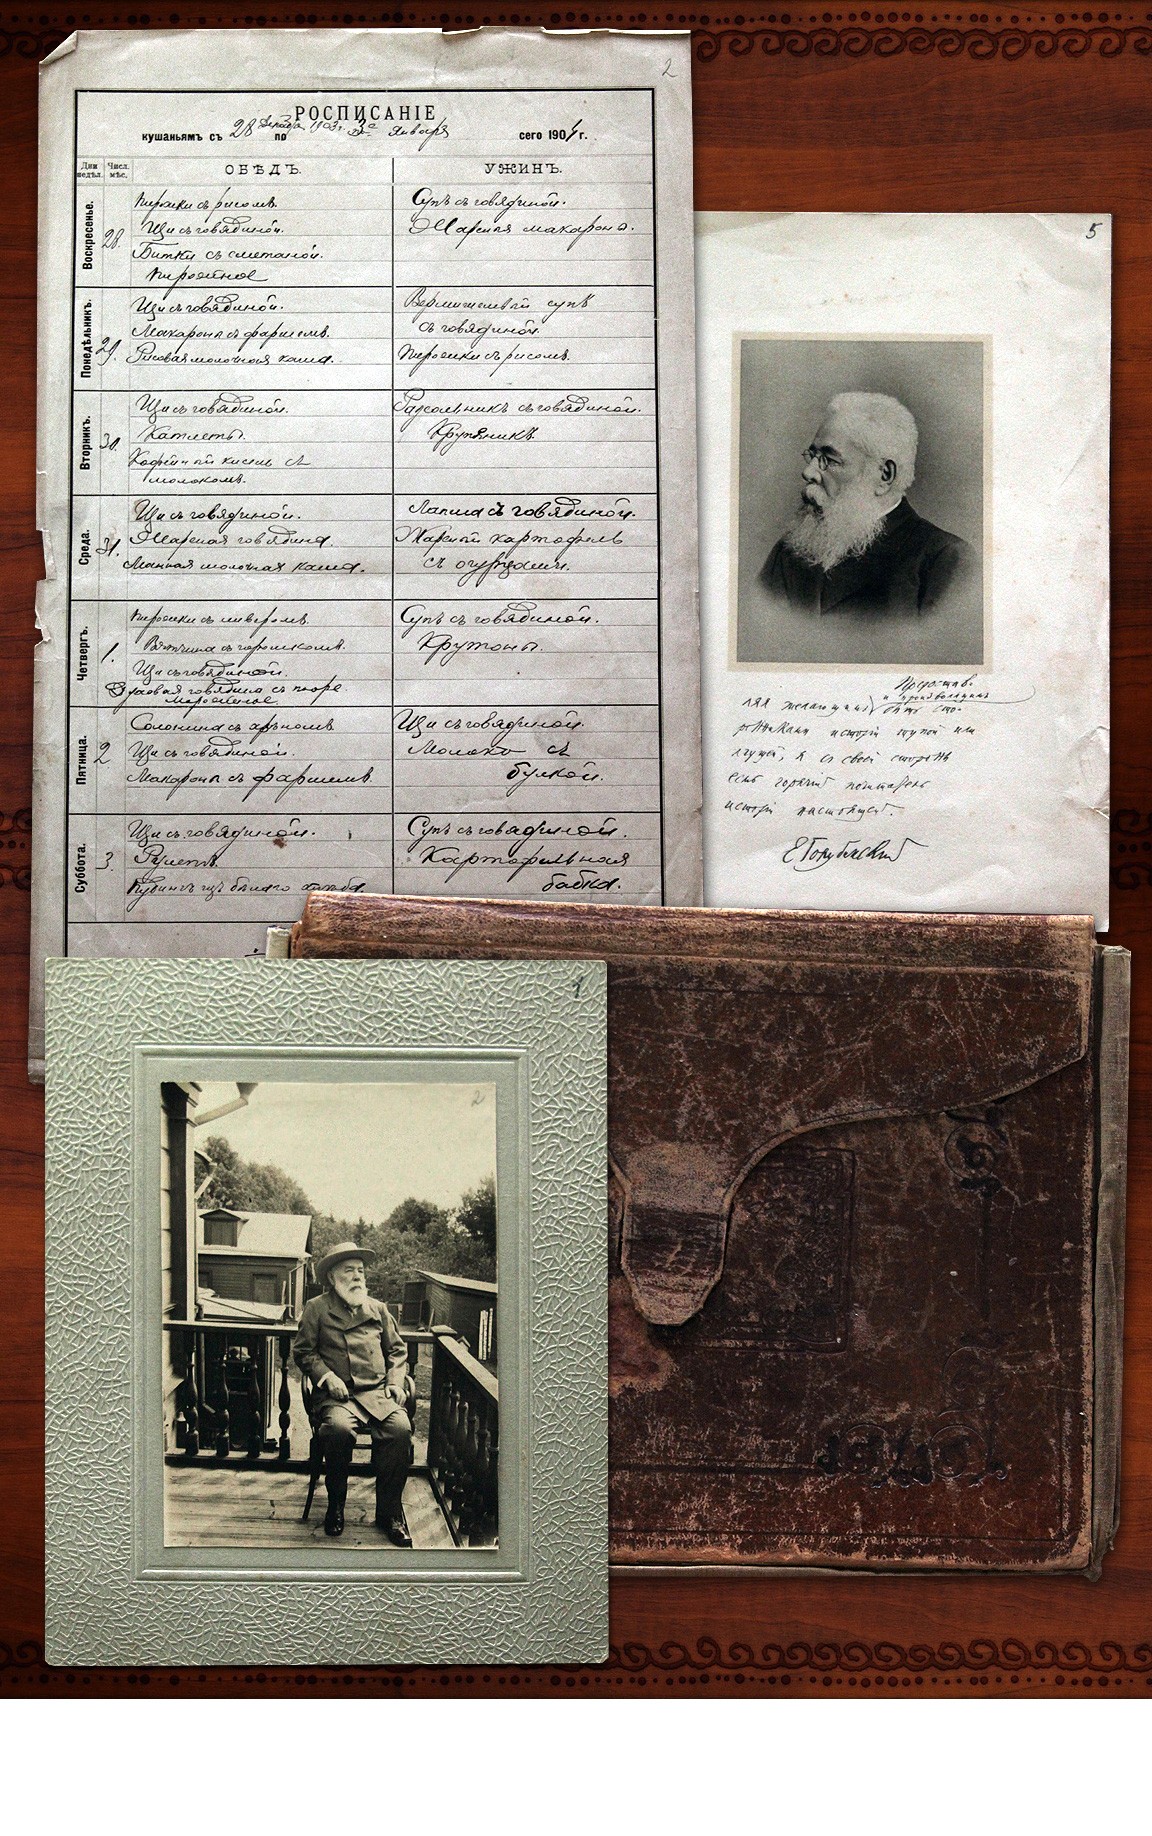 2
РОСПИСАНІЕ
кушаньямъ съ 28 Декабря 1903 г. по 3е Января сего 1904 г.
Дни недѣл. Числ. мѣс. ОБѢДЪ. УЖИНЪ.
Воскресенье. 28.
Пирожки съ рисомъ.
Щи съ говядиной.
Битки съ сметаной.
Пирожное
Супъ съ говядиной.
Жареня макароны.
Понедѣльникъ. 29.
Щи съ говядиной.
Макароны съ фаршемъ.
Рисовая молочная каша.
Вермишелый супъ
съ говядиной.
Пирожки съ рисомъ.
Вторникъ. 30.
Щи съ говядиной.
Катлеты.
Кофейный кисель съ
молокомъ.
Расольникъ съ говядиной.
Крупяникъ.
Среда. 31.
Щи съ говядиной.
Жареная говядина.
Манная молочная каша.
Лапша съ говядиной.
Жареный картофель
съ огурцами.
Четвергъ. 1.
Пирожки съ ливеромъ.
Ветчина съ горошкомъ.
Щи съ говядиной.
говядина съ пюре
Мороженое.
Супъ съ говядиной.
Крутоны.
Пятница. 2
Солонина съ хрѣномъ
Щи съ говядиной.
Макароны съ фаршемъ
Щи съ говядиной.
Молоко съ
булкой.
Суббота. 3
Щи съ говядиной.
Рулетъ.
Пудингъ изъ бѣлаго хлѣба
Супъ съ говядиной.
Картофельная
бабка.
5
Представ-
ляя желающимъ и произволящимъ быть сто-
ронниками исторіи тупой или
лгущей, я съ своей стороны
есмь горячій почитатель
исторіи настоящей.
Е Голубинскій
1
2